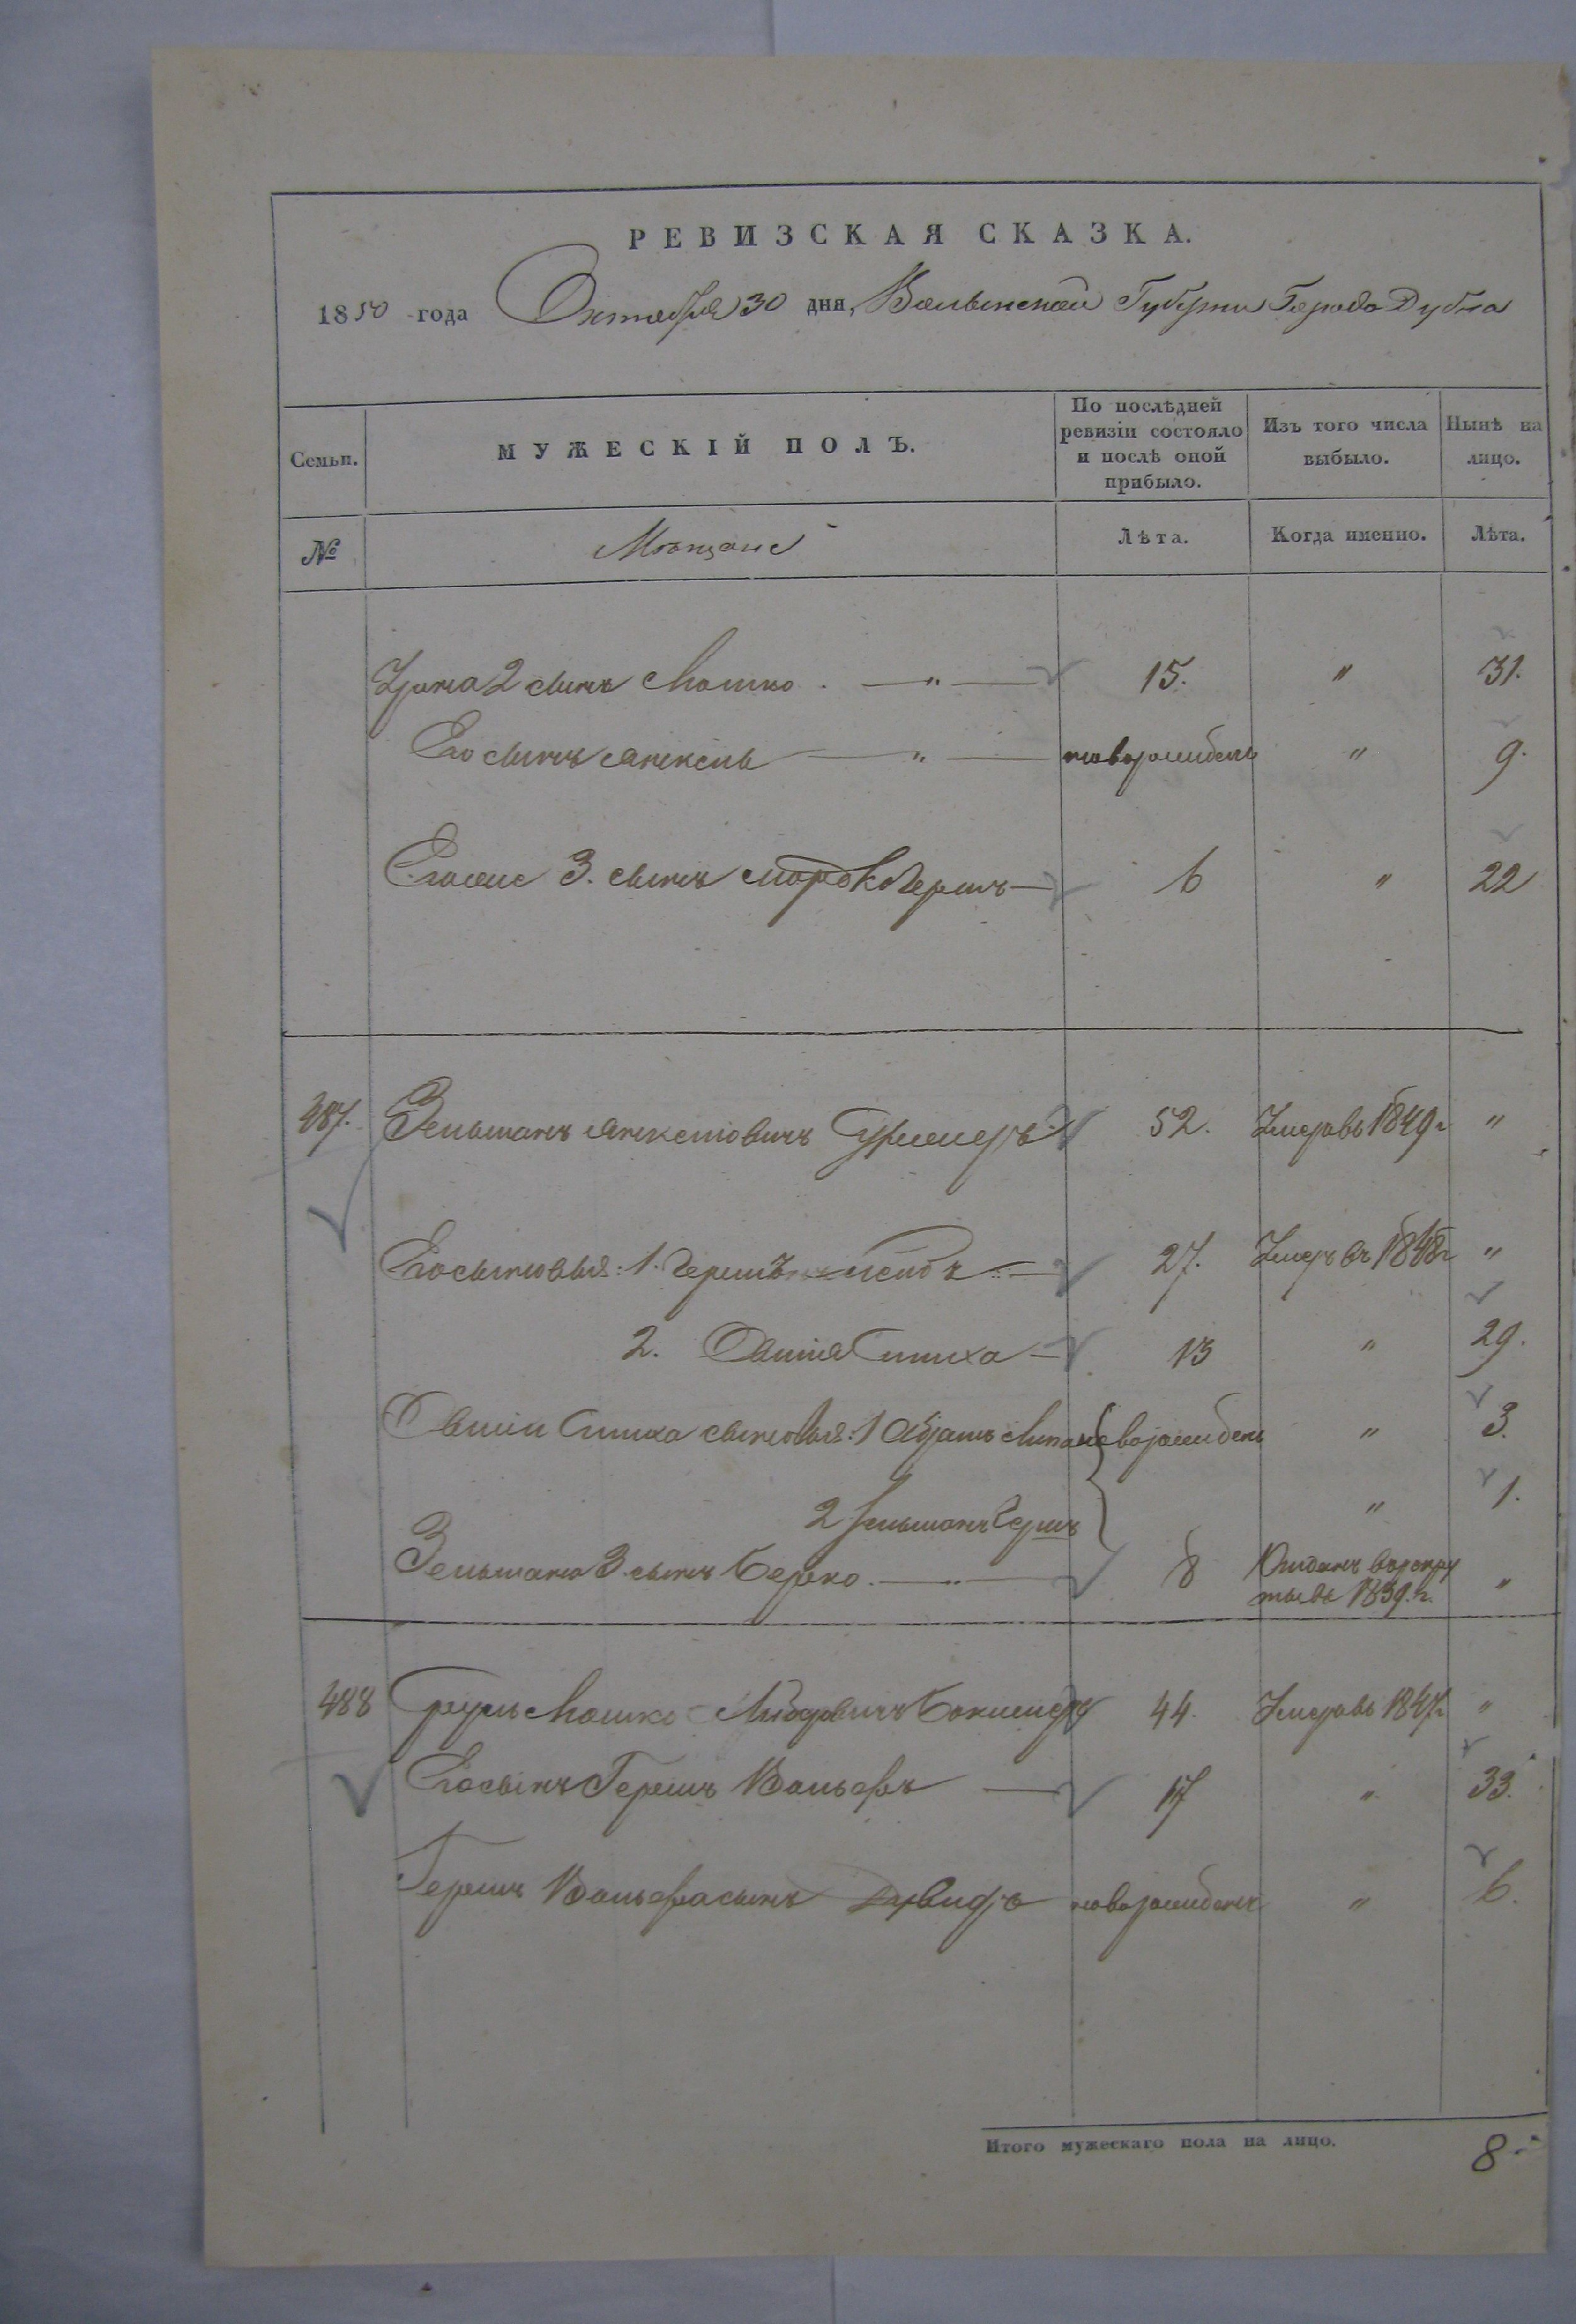 РЕВИЗСКАЯ СКАЗКА.
1850 года Октября 30 дня, Волынской Губернии Города Дубна
Семьи. МУЖЕСКІЙ ПОЛЪ. По послѣдней ревизіи состояло и послѣ оной прибыло. Изъ того числа выбыло. Нынѣ на лицо.
№ Мѣщане Лѣта. Когда именно. Лѣта.
2 сынъ Мошко — " — 15. " 31.
Его сынъ Янкель — " — новорожденъ " 9.
3. сынъ Мордко Гершъ — 6 " 22
487. Зельманъ Янкелювичъ 52. Умеръ въ 1849 г "
Его сыновья: 1. Гершъ Лейбъ — 27. Умеръ въ 1848 г "
2. — 13 " 29.
сыновья: 1 Абрамъ новорожденъ " 3.
2 Зельманъ Гершъ " 1.
Зельмана 3. сынъ Берко. — " — 8 Отданъ в рекруты въ 1839. г. "
488 Мошко Лейбовичъ 44. Умеръ въ 1847 г "
Его сынъ Гершъ Вольфъ — 17 " 33.
Гершъ Вольфа сынъ новорожденъ " 6.
Итого мужескаго пола на лицо. 8